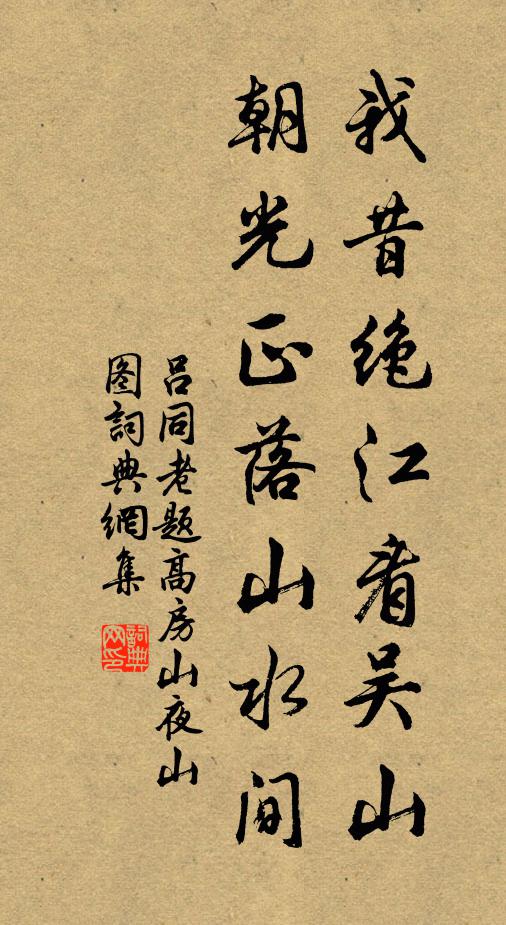 我昔绝江看吴山
朝光正落山水间
吕同老题高房山夜山
图詞典網集
詞典网印